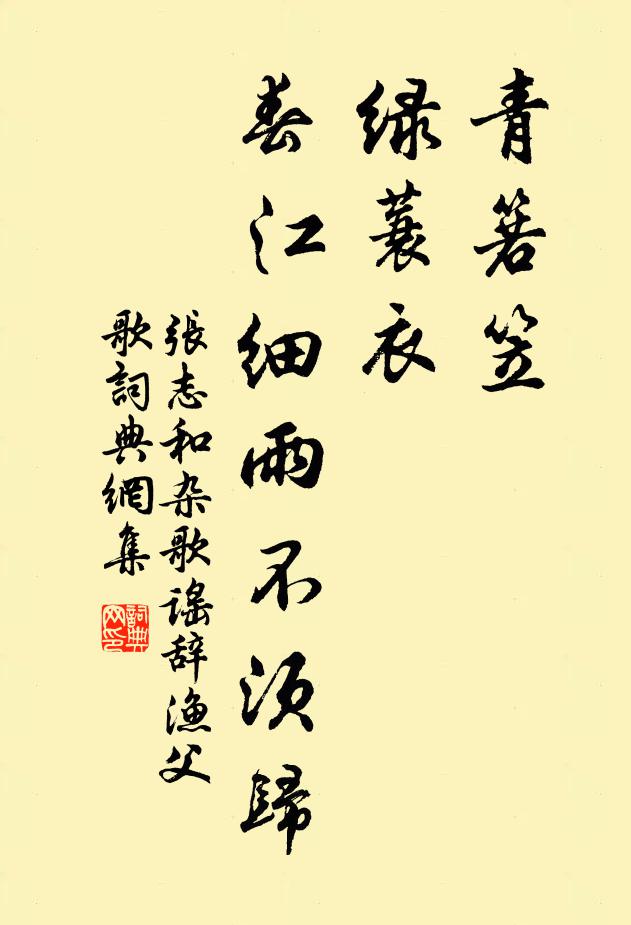 青箬笠
绿蓑衣
春江细雨不须歸
張志和杂歌谣辞漁父
歌詞典網集
詞典
网印